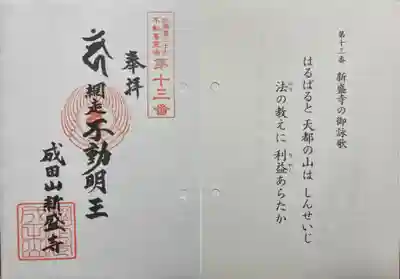 第十三番 新盛寺の御詠歌
はるばると 天都の山は しんせいじ
法の教えに 利益あらたか
のり
りやく
第十三番
奉拝
網走 不動明王
成田山新盛寺